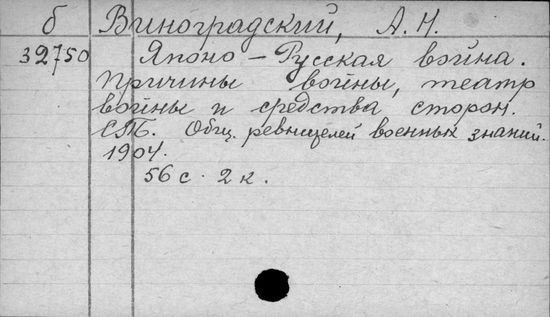 б Виноградский, А. Н.
32750 Японо-Русская война.
Причины войны, театр
войны и средства сторон.
СПБ. Общ. ревнителей военных знаний.
1904.
56 с. 2 к.